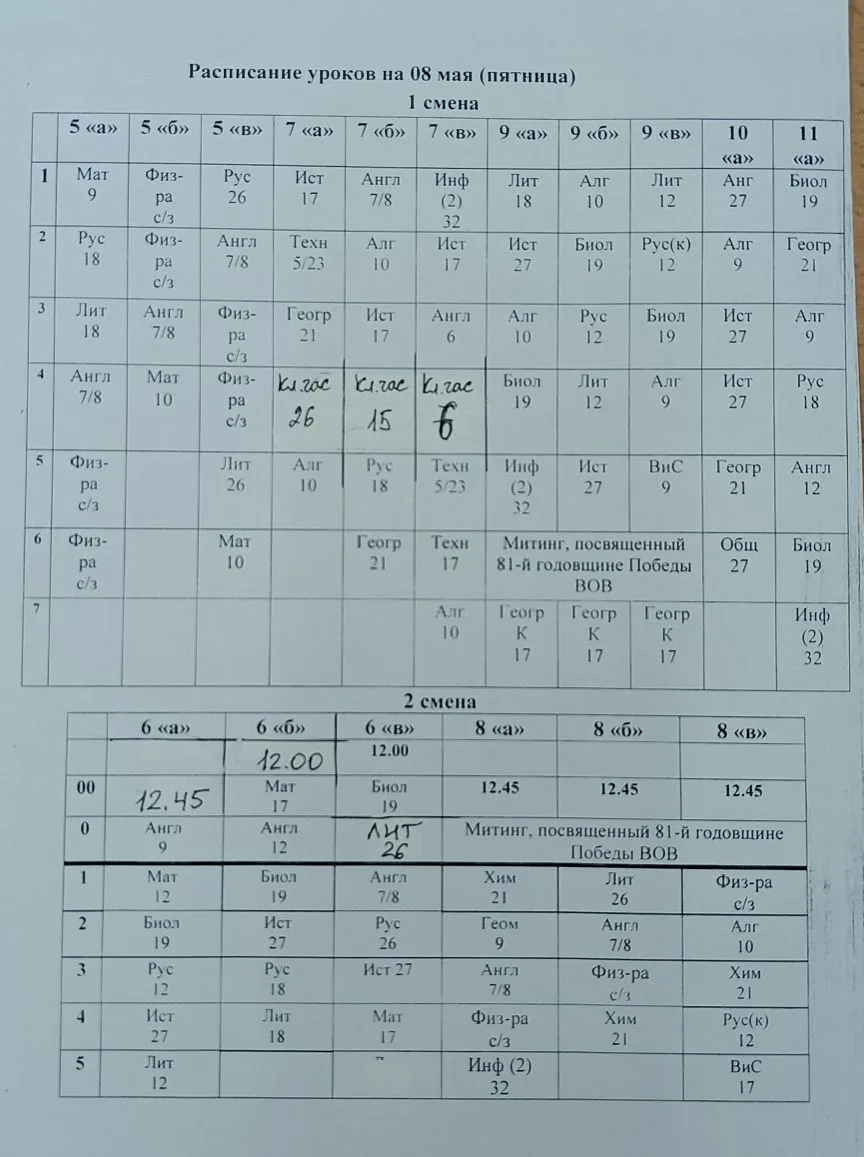 Расписание уроков на 08 мая (пятница)
1 смена
5 «а» 5 «б» 5 «в» 7 «а» 7 «б» 7 «в» 9 «а» 9 «б» 9 «в» 10 «а» 11 «а»
1 Мат 9 Физ-ра с/з Рус 26 Ист 17 Англ 7/8 Инф (2) 32 Лит 18 Алг 10 Лит 12 Анг 27 Биол 19
2 Рус 18 Физ-ра с/з Англ 7/8 Техн 5/23 Алг 10 Ист 17 Ист 27 Биол 19 Рус(к) 12 Алг 9 Геогр 21
3 Лит 18 Англ 7/8 Физ-ра с/з Геогр 21 Ист 17 Англ 6 Алг 10 Рус 12 Биол 19 Ист 27 Алг 9
4 Англ 7/8 Мат 10 Физ-ра с/з Кл.час 26 Кл.час 15 Кл.час 6 Биол 19 Лит 12 Алг 9 Ист 27 Рус 18
5 Физ-ра с/з Лит 26 Алг 10 Рус 18 Техн 5/23 Инф (2) 32 Ист 27 ВиС 9 Геогр 21 Англ 12
6 Физ-ра с/з Мат 10 Геогр 21 Техн 17 Митинг, посвященный 81-й годовщине Победы ВОВ Общ 27 Биол 19
7 Алг 10 Геогр К 17 Геогр К 17 Геогр К 17 Инф (2) 32
2 смена
6 «а» 6 «б» 6 «в» 8 «а» 8 «б» 8 «в»
12.00 12.00
00 12.45 Мат 17 Биол 19 12.45 12.45 12.45
0 Англ 9 Англ 12 ЛИТ 26 Митинг, посвященный 81-й годовщине Победы ВОВ
1 Мат 12 Биол 19 Англ 7/8 Хим 21 Лит 26 Физ-ра с/з
2 Биол 19 Ист 27 Рус 26 Геом 9 Англ 7/8 Алг 10
3 Рус 12 Рус 18 Ист 27 Англ 7/8 Физ-ра с/з Хим 21
4 Ист 27 Лит 18 Мат 17 Физ-ра с/з Хим 21 Рус(к) 12
5 Лит 12 Инф (2) 32 ВиС 17